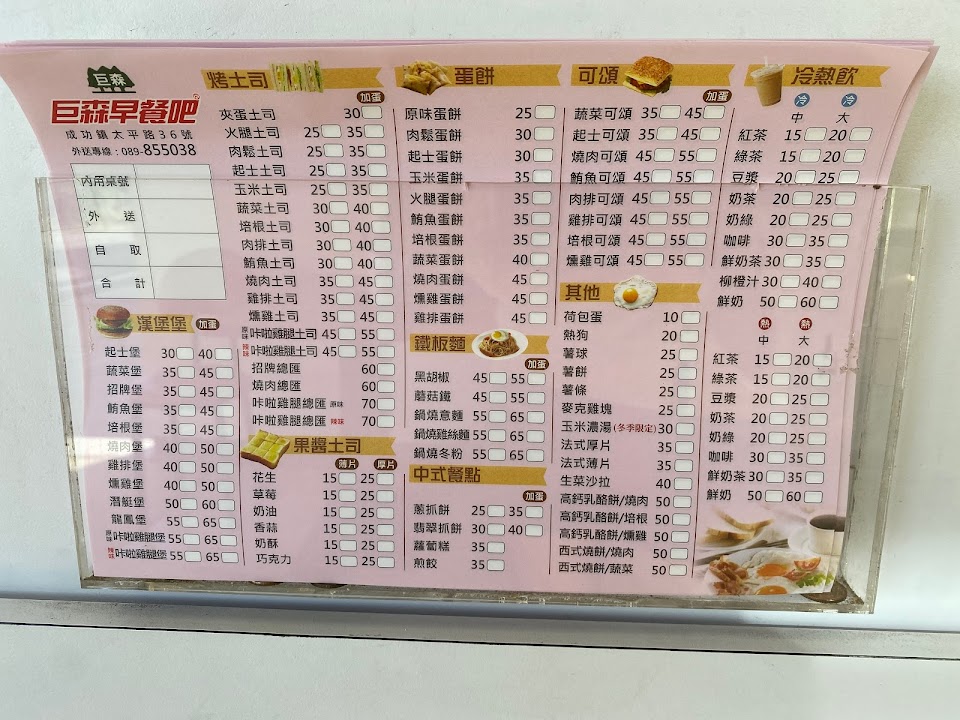 巨森
巨森早餐吧®
成功鎮太平路36號
外送專線：089-855038
內用桌號
外 送
自 取
合 計
漢堡堡 加蛋
起士堡 30 40
蔬菜堡 35 45
招牌堡 35 45
鮪魚堡 35 45
培根堡 35 45
燒肉堡 40 50
雞排堡 40 50
燻雞堡 40 50
潛艇堡 50 60
龍鳳堡 55 65
原味 咔啦雞腿堡 55 65
辣味 咔啦雞腿堡 55 65
烤土司
加蛋
夾蛋土司 30
火腿土司 25 35
肉鬆土司 25 35
起士土司 25 35
玉米土司 25 35
蔬菜土司 30 40
培根土司 30 40
肉排土司 30 40
鮪魚土司 30 40
燒肉土司 35 45
雞排土司 35 45
燻雞土司 35 45
原味 咔啦雞腿土司 45 55
辣味 咔啦雞腿土司 45 55
招牌總匯 60
燒肉總匯 60
咔啦雞腿總匯 原味 70
咔啦雞腿總匯 辣味 70
果醬土司
薄片 厚片
花生 15 25
草莓 15 25
奶油 15 25
香蒜 15 25
奶酥 15 25
巧克力 15 25
蛋餅
原味蛋餅 25
肉鬆蛋餅 30
起士蛋餅 30
玉米蛋餅 30
火腿蛋餅 35
鮪魚蛋餅 35
培根蛋餅 35
蔬菜蛋餅 40
燒肉蛋餅 45
燻雞蛋餅 45
雞排蛋餅 45
鐵板麵
加蛋
黑胡椒 45 55
蘑菇鐵 45 55
鍋燒意麵 55 65
鍋燒雞絲麵 55 65
鍋燒冬粉 55 65
中式餐點
加蛋
蔥抓餅 25 35
翡翠抓餅 30 40
蘿蔔糕 35
煎餃 35
可頌
加蛋
蔬菜可頌 35 45
起士可頌 35 45
燒肉可頌 45 55
鮪魚可頌 45 55
肉排可頌 45 55
雞排可頌 45 55
培根可頌 45 55
燻雞可頌 45 55
其他
荷包蛋 10
熱狗 20
薯球 25
薯餅 25
薯條 25
麥克雞塊 25
玉米濃湯(冬季限定) 30
法式厚片 35
法式薄片 35
生菜沙拉 40
高鈣乳酪餅/燒肉 50
高鈣乳酪餅/培根 50
高鈣乳酪餅/燻雞 50
西式燒餅/燒肉 50
西式燒餅/蔬菜 50
冷熱飲
冷 冷
中 大
紅茶 15 20
綠茶 15 20
豆漿 20 25
奶茶 20 25
奶綠 20 25
咖啡 30 35
鮮奶茶 30 35
柳橙汁 30 40
鮮奶 50 60
熱 熱
中 大
紅茶 15 20
綠茶 15 20
豆漿 20 25
奶茶 20 25
奶綠 20 25
咖啡 30 35
鮮奶茶 30 35
鮮奶 50 60